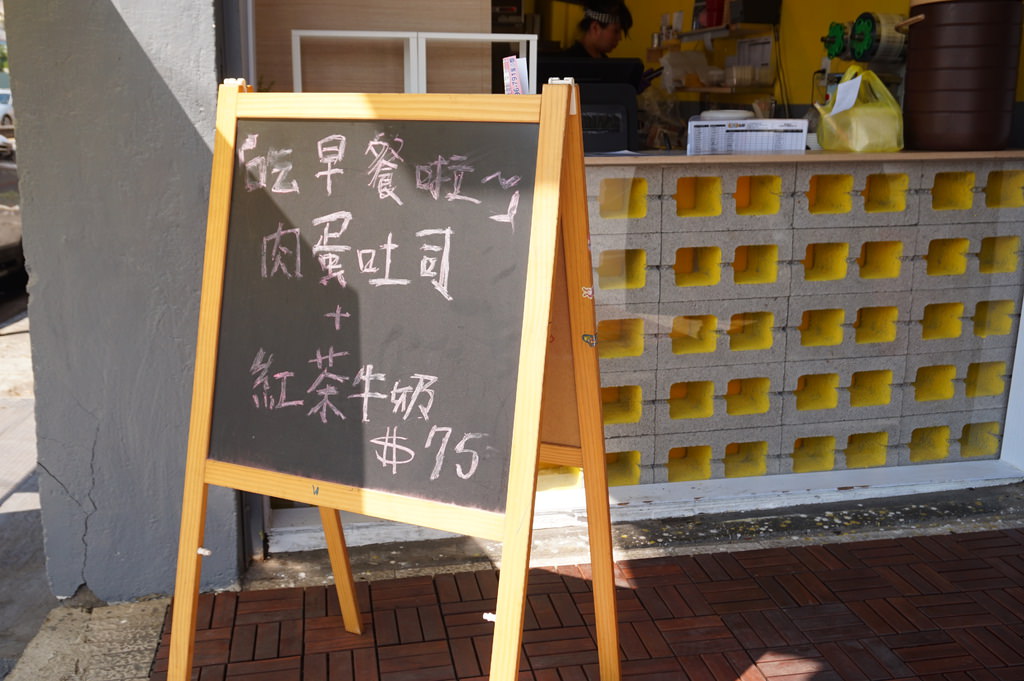 吃早餐啦~
肉蛋吐司
+
紅茶牛奶
$75